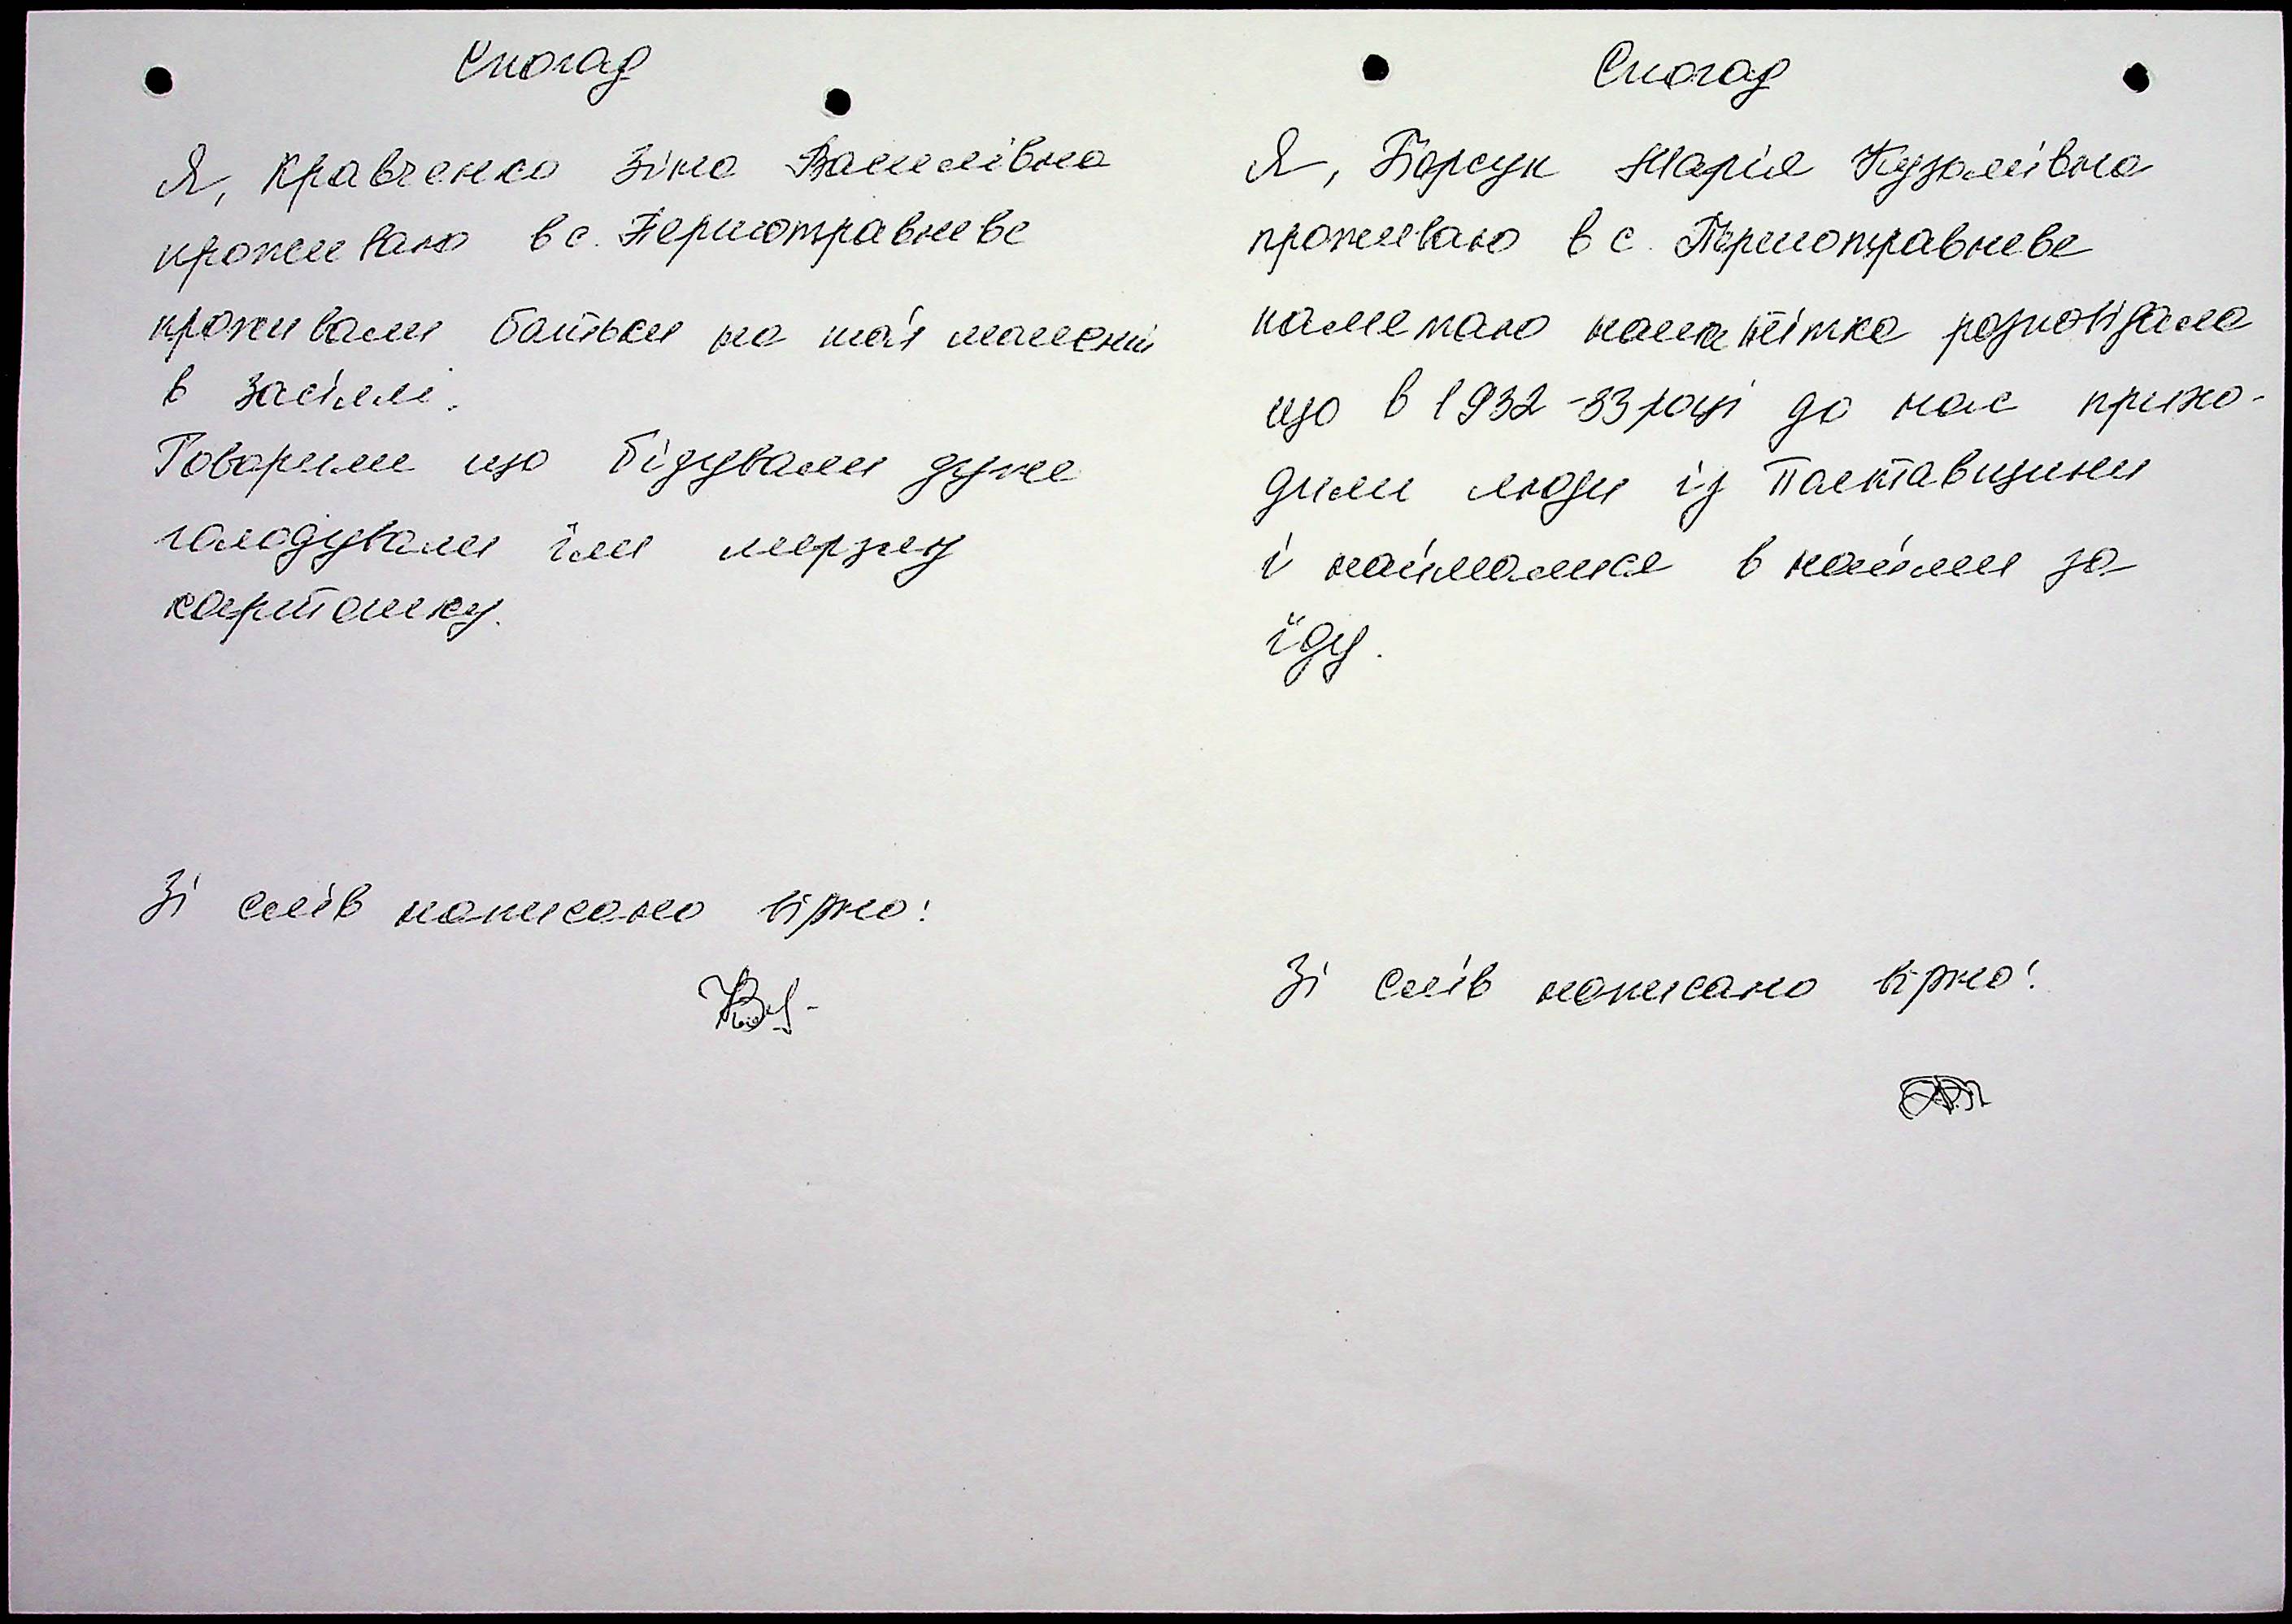 Спогад
Я, Кравченко Зіна Василівна
проживаю в с. Першотравневе
проживали батьки на
в Засіллі.
Говорили що бідували дуже
голодували їли мерзлу
картошку.
Зі слів написано вірно:
Спогад
Я, Борсук Марія Кузьмівна
проживаю в с. Першотравневе
памятаю наша тітка розповідала
що в 1932-33 році до нас прихо-
дили люди із Полтавщини
і наймалися в найми за
їду.
Зі слів написано вірно!